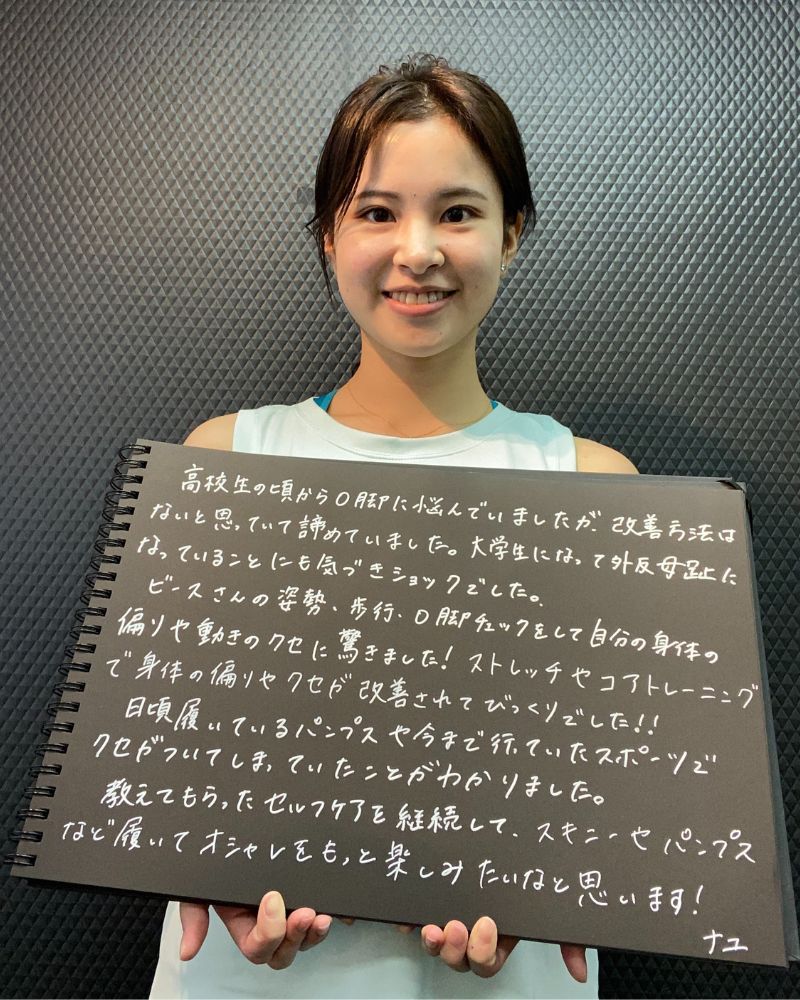 高校生の頃からO脚に悩んでいましたが、改善方法は
ないと思っていて諦めていました。大学生になって外反母趾に
なっていることにも気づきショックでした。
ビースさんの姿勢、歩行、O脚チェックをして自分の身体の
偏りや動きのクセに驚きました！ストレッチやコアトレーニング
で身体の偏りやクセが改善されてびっくりでした!!
日頃履いているパンプスや今まで行っていたスポーツで
クセがついてしまっていたことがわかりました。
教えてもらったセルフケアを継続して、スキニーやパンプス
など履いてオシャレをもっと楽しみたいなと思います！
ナユ